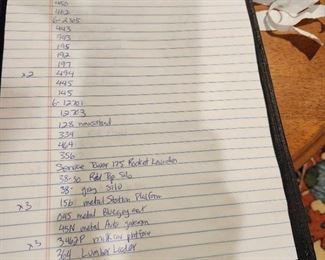 450
462
6-2305
443
943
195
192
197
x2 494
445
145
6-12701
12703
128 newsstand
334
464
356
Service Tower 175 Rocket Launcher
38-50 Red Top Silo
38- gray Silo
x3 156 metal Station Platform
045 metal
45N metal Auto gateman
x3 3462P milk car platform
364 Lumber Loader